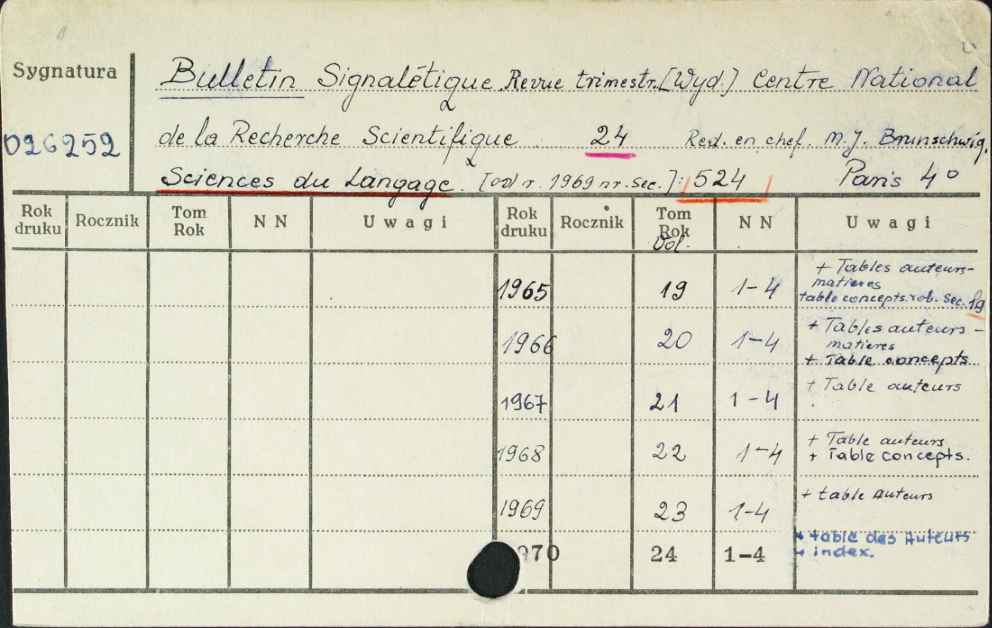 Sygnatura
Bulletin Signalétique Revue trimestr. [Wyd.] Centre National
026252
de la Recherche Scientifique 24 Red. en chef. M. J. Brunschwig.
Sciences du Langage. [od r. 1969 nr. sec.]: 524 Paris 4°
Rok druku Rocznik Tom Rok NN Uwagi Rok druku Rocznik Tom Rok NN Uwagi
Vol.
1965 19 1-4 + Tables auteurs-
matières
table concepts. rob. Sec. 19
1966 20 1-4 + Tables auteurs -
matières
+ Table concepts.
1967 21 1-4 + Table auteurs
1968 22 1-4 + Table auteurs
+ Table concepts.
1969 23 1-4 + table Auteurs
970 24 1-4 + table des Auteurs
+ index.